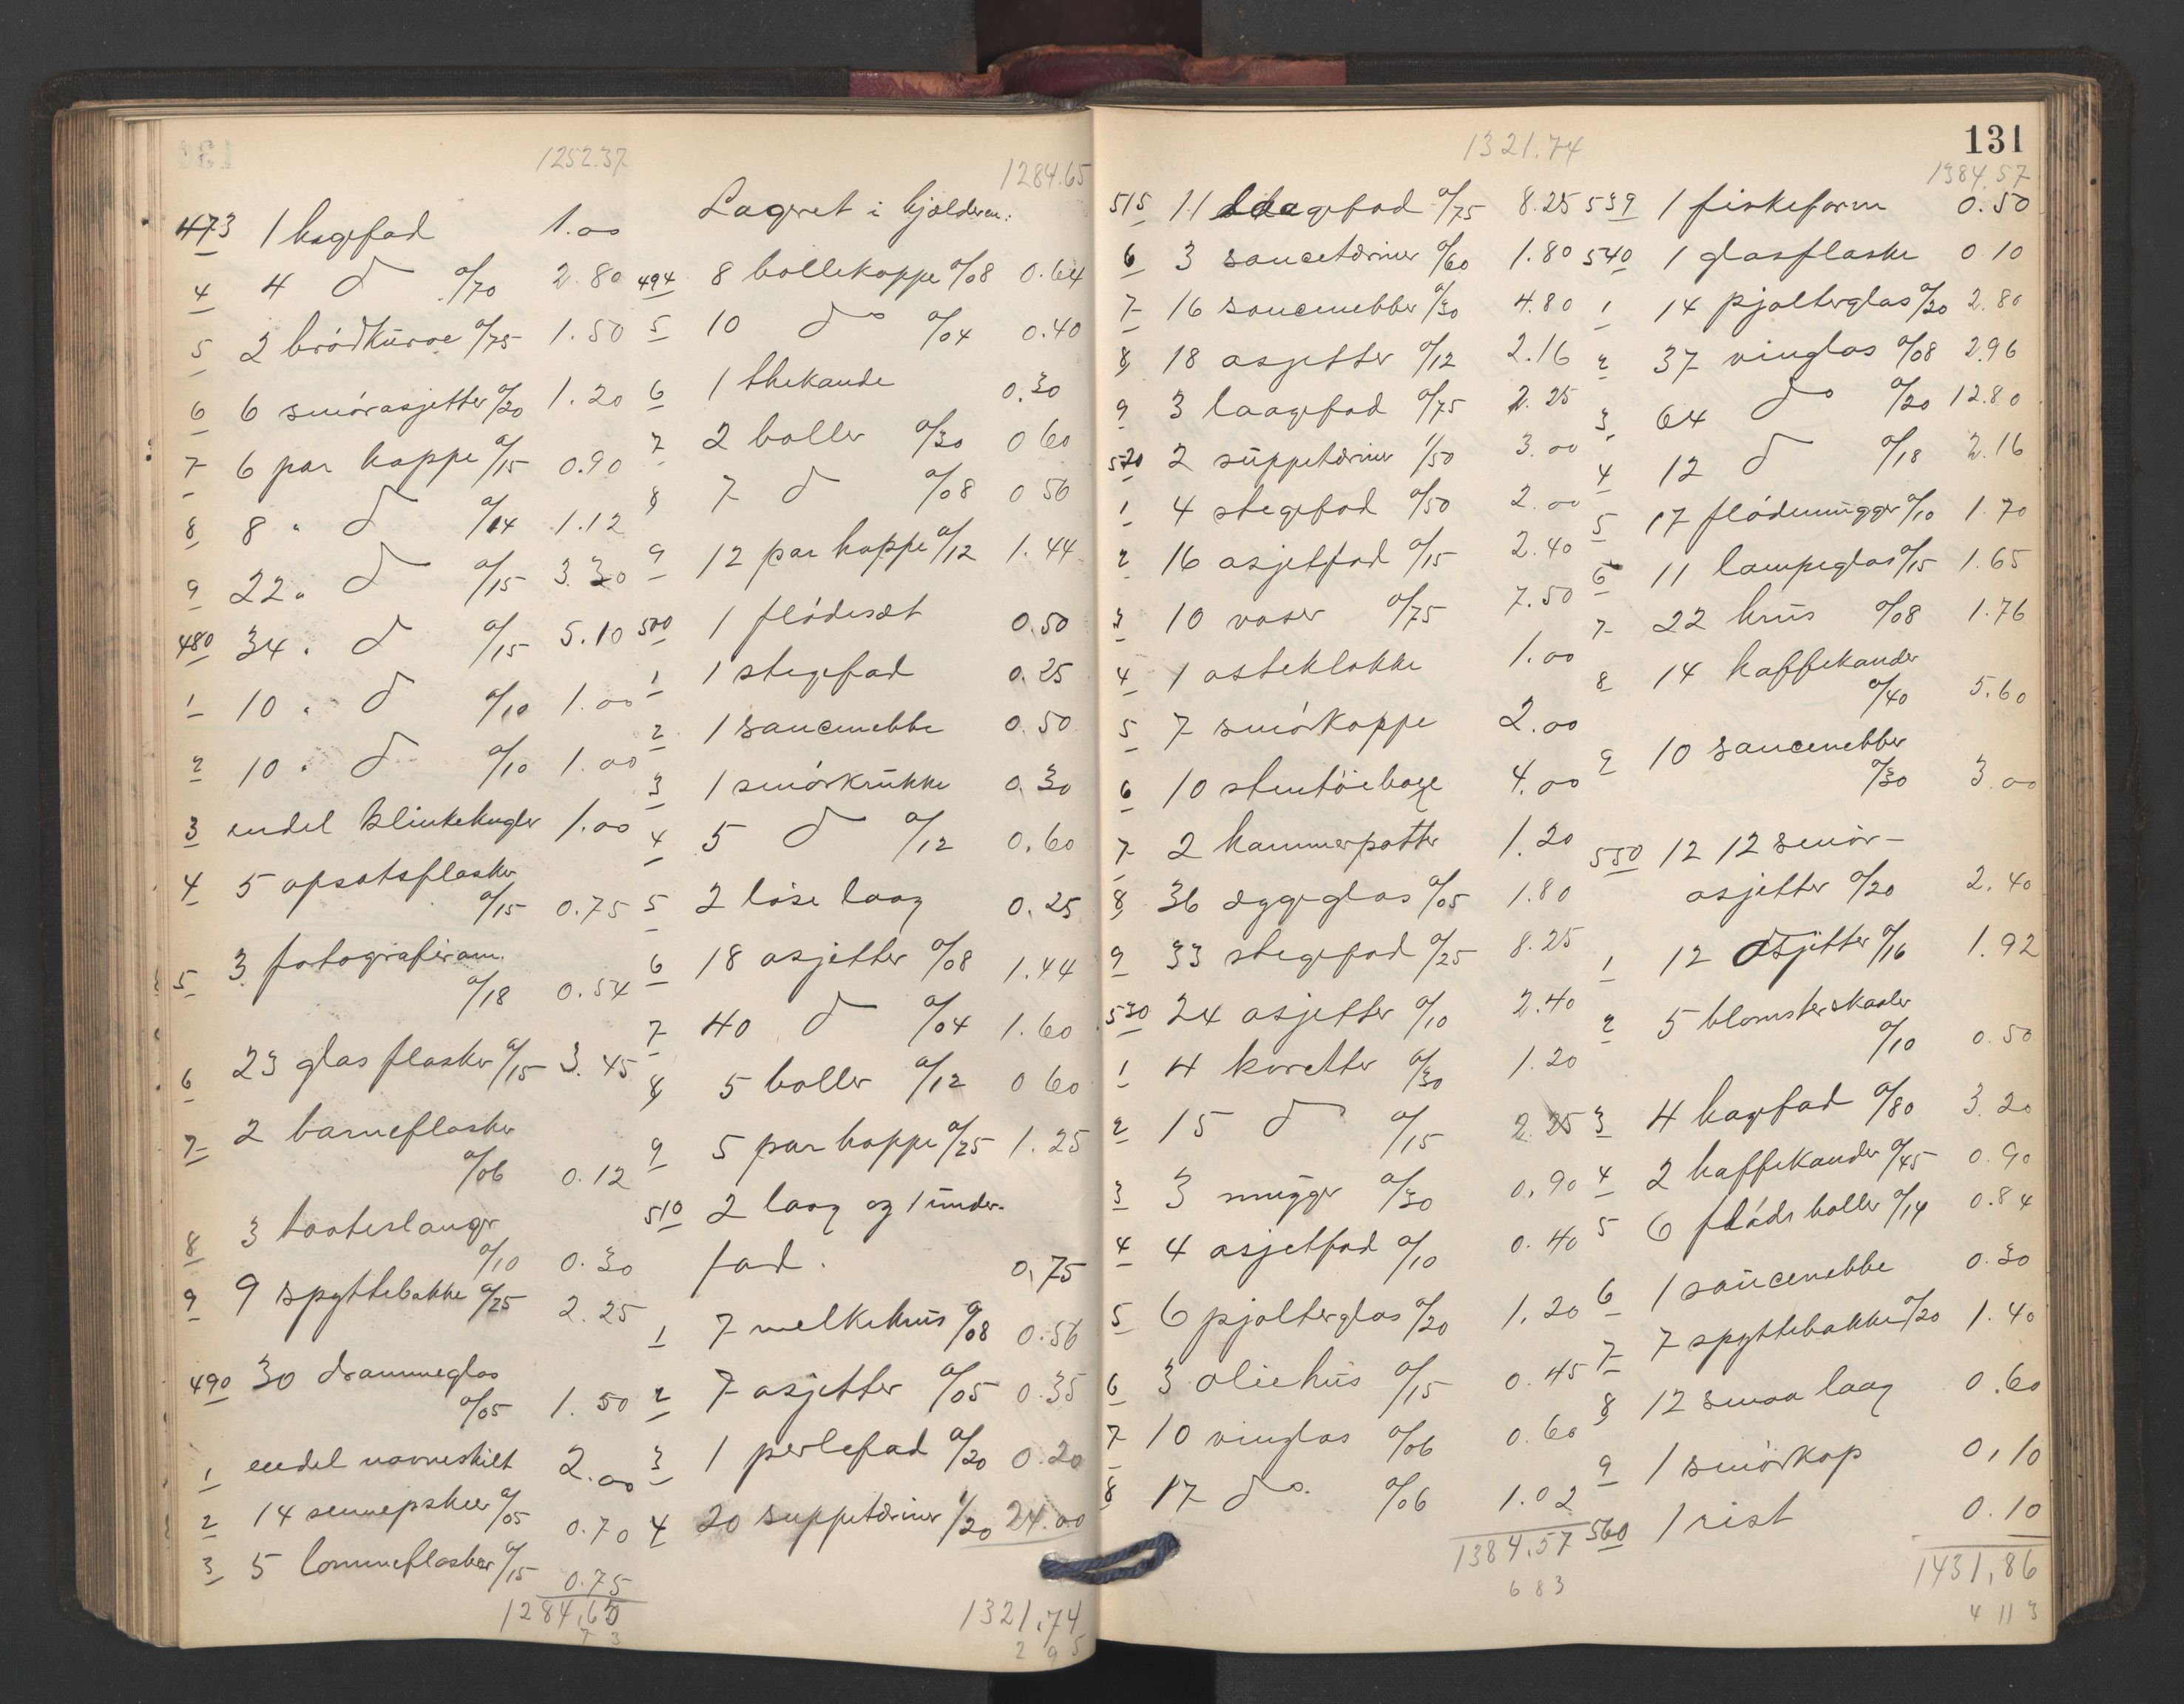 1252.37
473 1 kagefad 1.00
4 4 d a/70 2.80
5 2 brödkurve a/75 1.50
6 6 smörasjetter a/20 1.20
7 6 par koppe a/15 0.90
8 8 " d a/14 1.12
9 22 " d a/15 3.30
480 34 " d a/15 5.10
1 10 " d a/10 1.00
2 10 " d a/10 1.00
3 endel klinkekugler 1.00
4 5 opsatsflasker
a/15 0.75
5 3 fotografiram.
a/18 0.54
6 23 glasflasker a/15 3.45
7 2 barneflasker
a/06 0.12
8 3 taateslanger
a/10 0.30
9 9 spyttebakke a/25 2.25
490 30 drammeglas
a/05 1.50
1 endel navneskilt 2.00
2 14 sennepskeer a/05 0.70
3 5 lommeflasker a/15 0.75
1284.65
7 3
1284.65
Lageret i kjælderen:
494 8 bollekoppe a/08 0.64
5 10 do a/04 0.40
6 1 thekande 0.30
7 2 boller a/30 0 60
8 7 d a/08 0 56
9 12 par koppe a/12 1.44
500 1 flödesæt 0.50
1 1 stegefad 0.25
2 1 saucenebbe 0.50
3 1 smörkrukke 0.30
4 5 d a/12 0.60
5 2 löse laag 0.25
6 18 asjetter a/08 1.44
7 40 d a/04 1.60
8 5 boller a/12 0 60
9 5 par koppe a/25 1.25
510 2 laag og 1 under-
fad. 0.75
1 7 melkekrus a/08 0.56
2 7 asjetter a/05 0.35
3 1 perlefad a/20 0.20
4 20 suppetæriner 1/20 24.00
1321.74
2 9 5
131
1321.74
515 11 dagefad a/75 8.25
6 3 saucetæriner a/60 1.80
7 16 saucenebber a/30 4.80
8 18 asjetter a/12 2.16
9 3 laagefad a/75 2.25
520 2 suppetæriner 1/50 3.00
1 4 stegefad a/50 2.00
2 16 asjetfad a/15 2.40
3 10 vaser a/75 7.50
4 1 osteklokke 1.00
5 7 smörkoppe 2.00
6 10 stentöibage 4.00
7 2 kammerpotter 1.20
8 36 æggeglas a/05 1.80
9 33 stegefad a/25 8.25
530 24 asjetter a/10 2.40
1 4 karetter a/30 1.20
2 15 d a/15 2.25
3 3 mugger a/30 0.90
4 4 asjetfad a/10 0.40
5 6 pjolterglas a/20 1.20
6 3 oliekrus a/15 0.45
7 10 vinglas a/06 0.60
8 17 do. a/06 1.02
1384.57
6 8 3
1384.57
539 1 fiskeform 0.50
540 1 glasflaske 0 10
1 14 pjolterglas a/20 2.80
2 37 vinglas a/08 2.96
3 64 do a/20 12.80
4 12 d a/18 2.16
5 17 flödemugger a/10 1.70
6 11 lampeglas a/15 1.65
7 22 krus a/08 1.76
8 14 kaffekander
a/40 5.60
9 10 saucenebber
a/30 3.00
550 12 12 smör-
asjetter a/20 2.40
1 12 asjetter a/16 1.92
2 5 blomsterskaaler
a/10 0.50
3 4 kagfad a/80 3.20
4 2 kaffekander a/45 0.90
5 6 flödeboller a/14 0.84
6 1 saucenebbe 0.30
7 7 spyttebakke a/20 1.40
8 12 smaa laag 0.60
9 1 smörkop 0,10
560 1 rist 0.10
1431,86
4 11 3